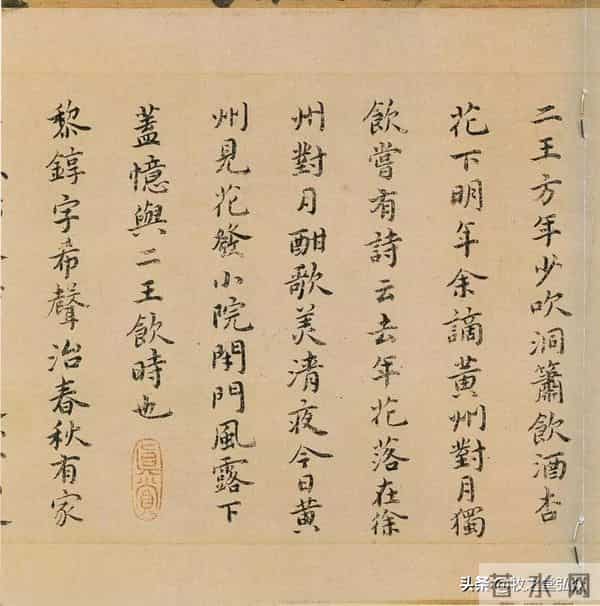 二王方年少吹洞簫飲酒杏
花下明年余謫黃州對月獨
飲嘗有詩云去年花落在徐
州對月酣歌美清夜今日黃
州見花發小院閉門風露下
蓋憶與二王飲時也
黎錞字希聲治春秋有家
頭条@牧之堂弘
若水网